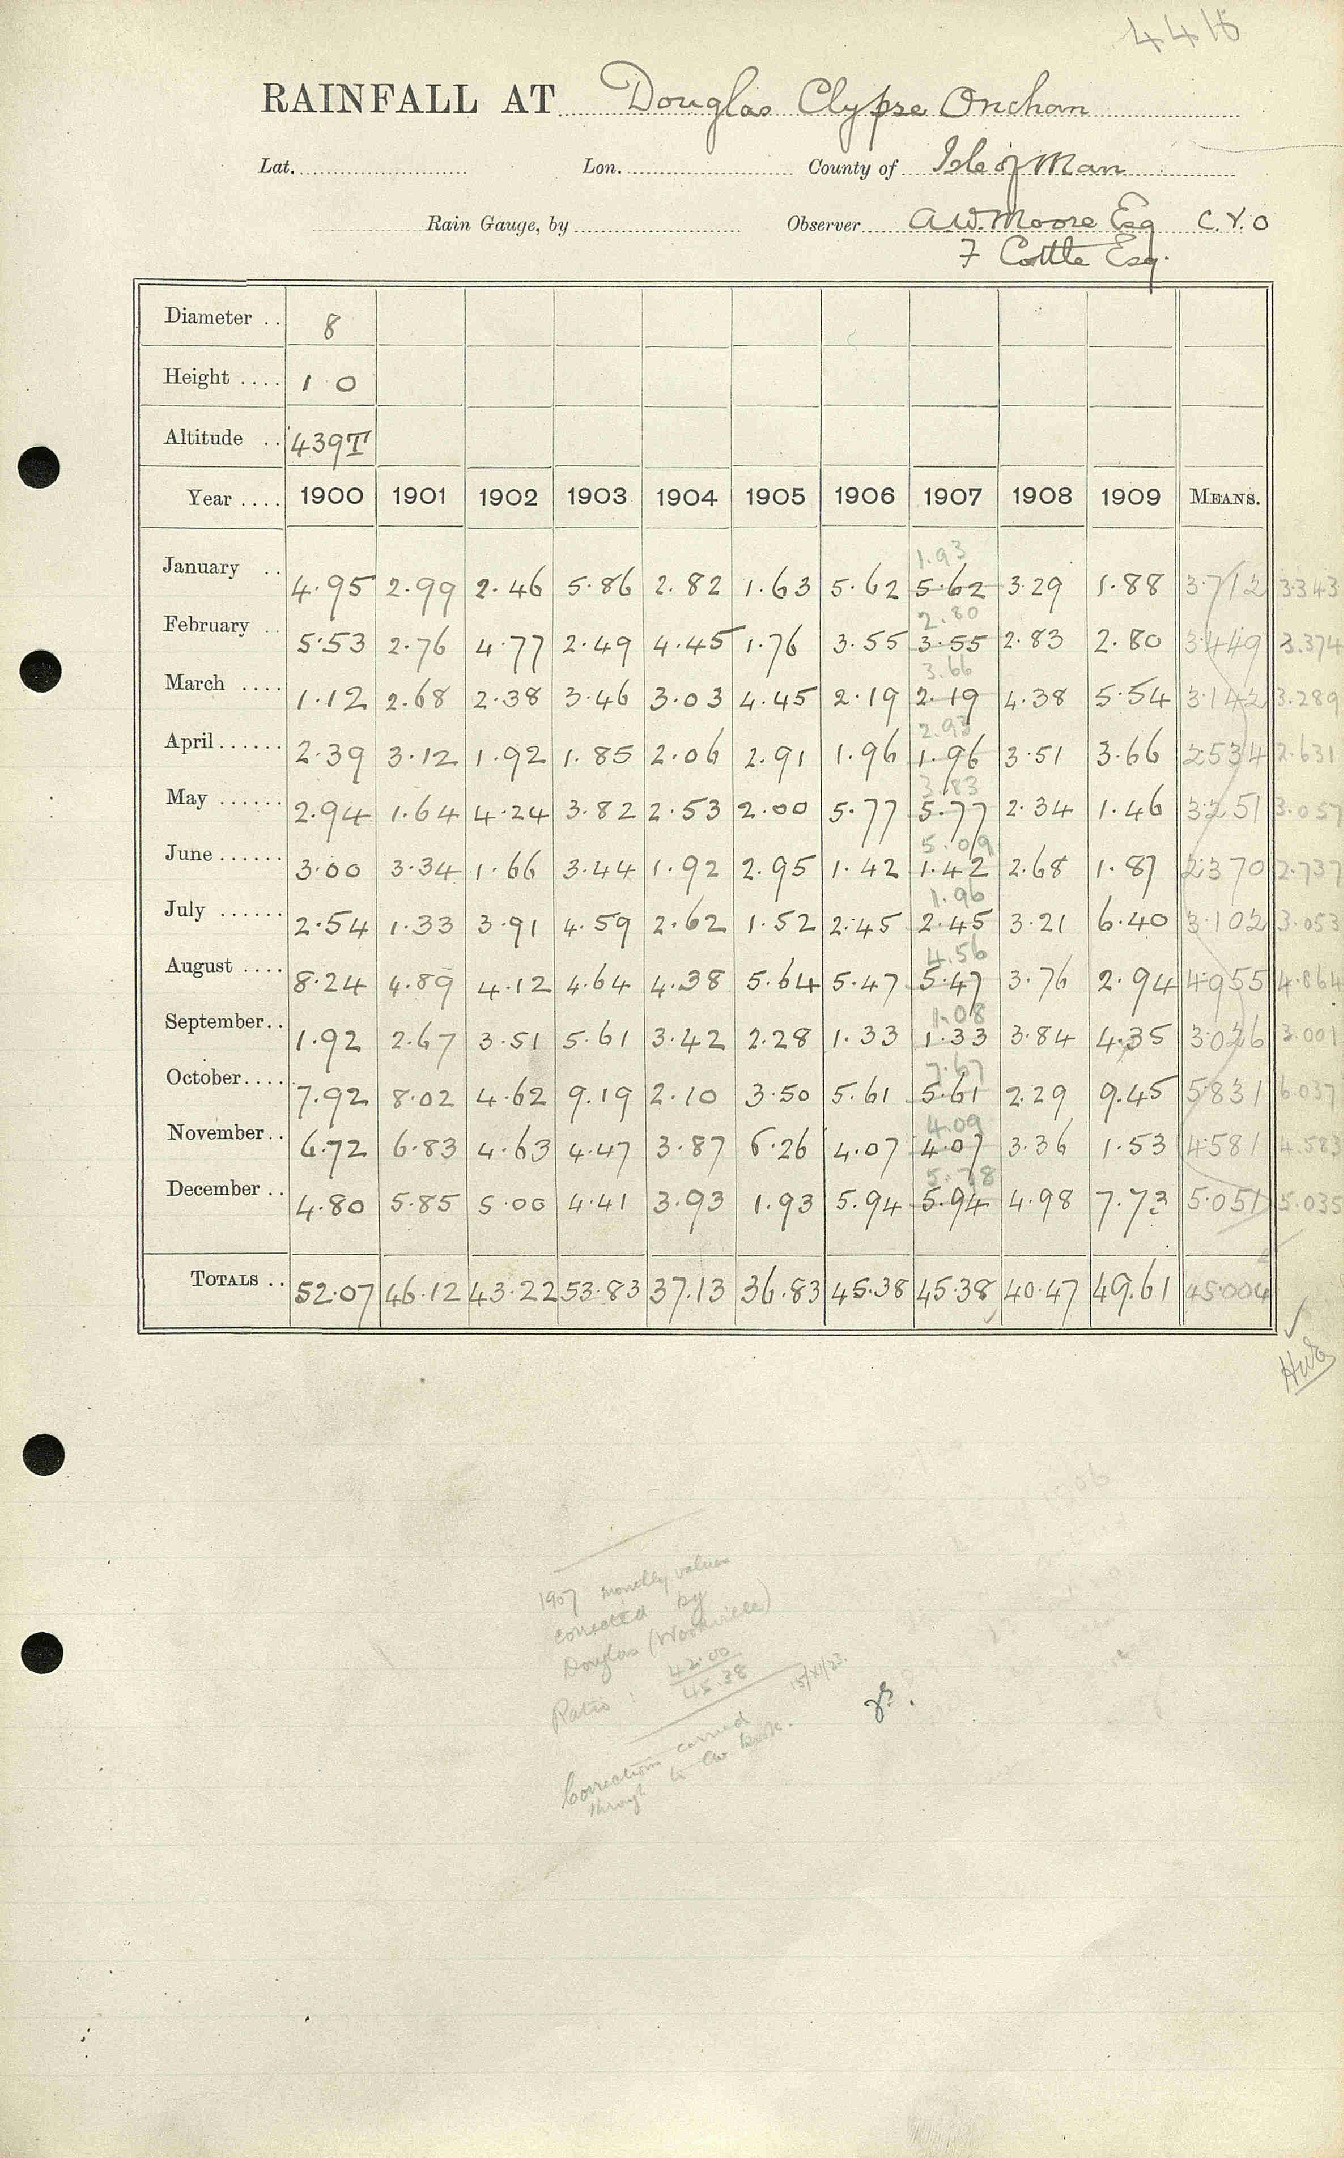 4415
RAINFALL AT Douglas Clypse Onchan
Lat. Lon. County of Isle of Man
Rain Gauge, by Observer A.W. Moore Esq C.V.O
F Cottle Esq.
Diameter .. 8
Height .... 1 0
Altitude .. 439T
Year .... 1900 1901 1902 1903 1904 1905 1906 1907 1908 1909 MEANS.
1.93
January .. 4.95 2.99 2.46 5.86 2.82 1.63 5.62 5.62 3.29 1.88 3.712 3.343
2.80
February .. 5.53 2.76 4.77 2.49 4.45 1.76 3.55 3.55 2.83 2.80 3.449 3.374
3.66
March .... 1.12 2.68 2.38 3.46 3.03 4.45 2.19 2.19 4.38 5.54 3.142 3.289
2.93
April...... 2.39 3.12 1.92 1.85 2.06 2.91 1.96 1.96 3.51 3.66 2.534 2.631
3.83
May ...... 2.94 1.64 4.24 3.82 2.53 2.00 5.77 5.77 2.34 1.46 3.251 3.057
5.09
June...... 3.00 3.34 1.66 3.44 1.92 2.95 1.42 1.42 2.68 1.87 2.370 2.737
1.96
July ...... 2.54 1.33 3.91 4.59 2.62 1.52 2.45 2.45 3.21 6.40 3.102 3.053
4.56
August .... 8.24 4.89 4.12 4.64 4.38 5.64 5.47 5.47 3.76 2.94 4.955 4.864
1.08
September.. 1.92 2.67 3.51 5.61 3.42 2.28 1.33 1.33 3.84 4.35 3.026 3.001
7.67
October.... 7.92 8.02 4.62 9.19 2.10 3.50 5.61 5.61 2.29 9.45 5.831 6.037
4.09
November.. 6.72 6.83 4.63 4.47 3.87 6.26 4.07 4.07 3.36 1.53 4.581 4.583
5.78
December .. 4.80 5.85 5.00 4.41 3.93 1.93 5.94 5.94 4.98 7.73 5.051 5.035
TOTALS .. 52.07 46.12 43.22 53.83 37.13 36.83 45.38 45.38 40.47 49.61 45.004
1907 monthly values
corrected by
Douglas (Woodville)
Ratio : 42.00
45.38
15/XI/23.
Corrections carried
through to Av book.